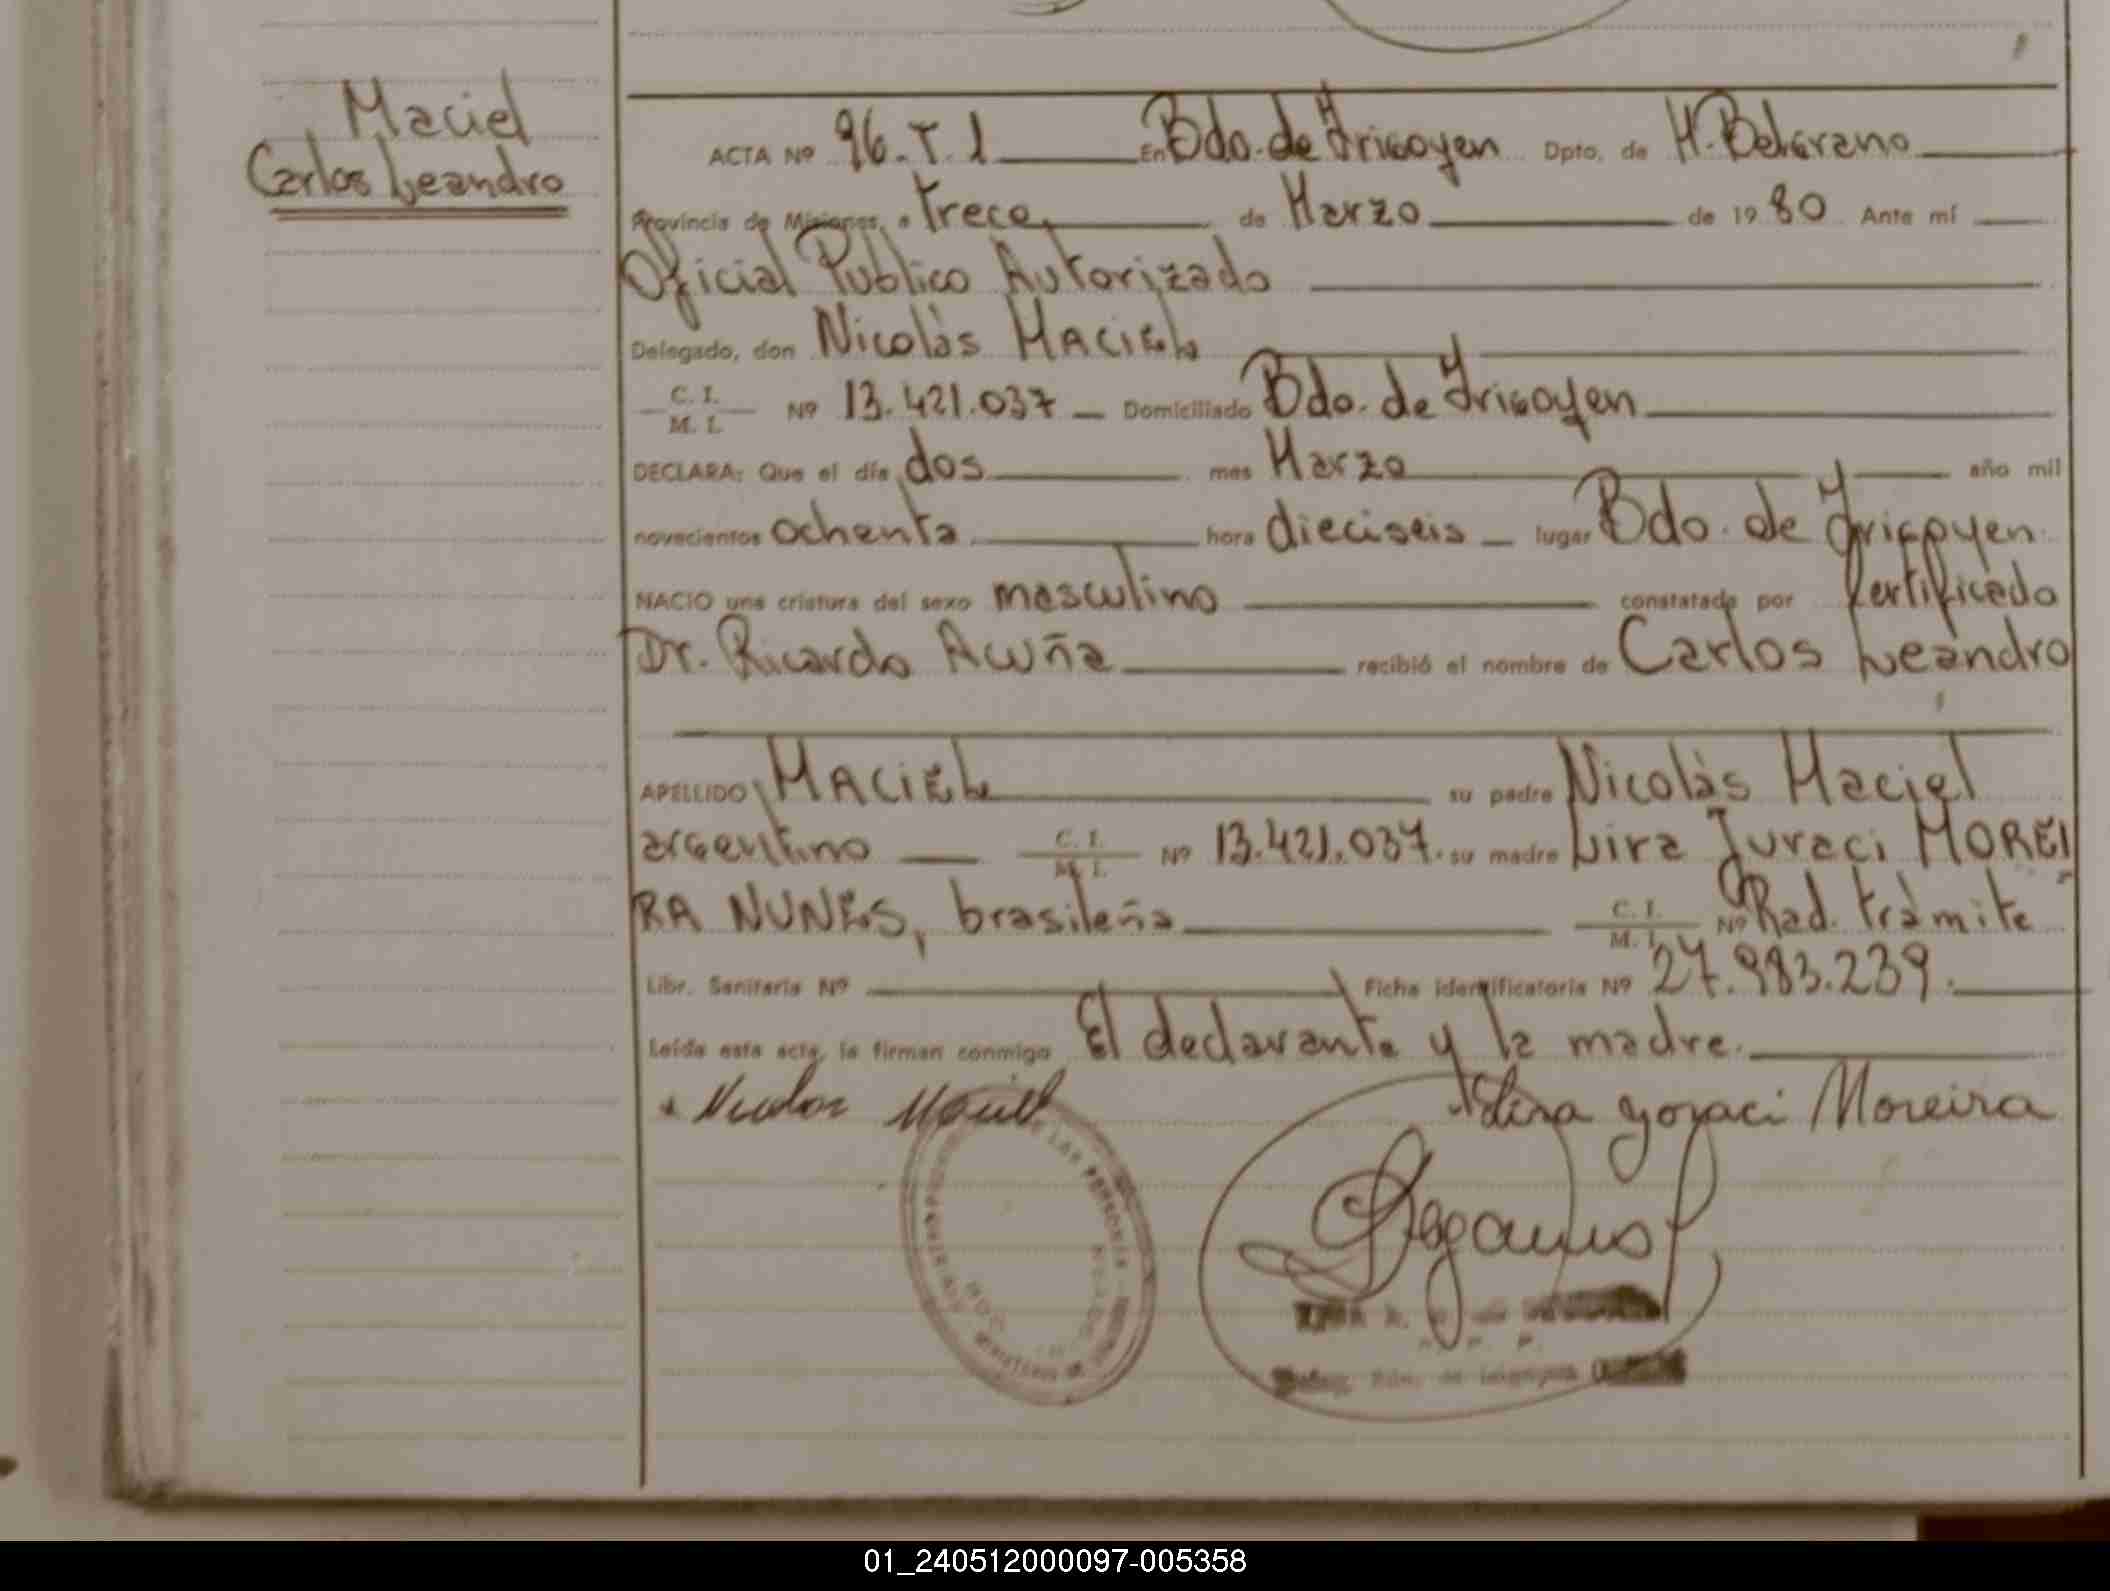 Maciel
Carlos Leandro
ACTA Nº 96. T. 1 En Bdo. de Irigoyen Dpto. de M. Belgrano
Provincia de Misiones, a trece de Marzo de 1980 Ante mí
Oficial Publico Autorizado
Delegado, don Nicolás MACIEL
C. I. / M. I. Nº 13.421.037 Domiciliado Bdo. de Irigoyen
DECLARA: Que el día dos mes Marzo año mil
novecientos ochenta hora dieciseis lugar Bdo. de Irigoyen
NACIO una criatura del sexo masculino constatada por Certificado
Dr. Ricardo Acuña recibió el nombre de Carlos Leandro
APELLIDO MACIEL su padre Nicolás Maciel
argentino C. I. / M. I. Nº 13.421.037. su madre Lira Juraci MOREI
RA NUNES, brasileña C. I. / M. I. Nº Rad. trámite
Libr. Sanitaria Nº Ficha identificatoria Nº 27.983.239.
Leída esta acta, la firman conmigo El declarante y la madre.
Nicolas Maciel
Lira yoraci Moreira
DE LAS PERSONAS
01_240512000097-005358